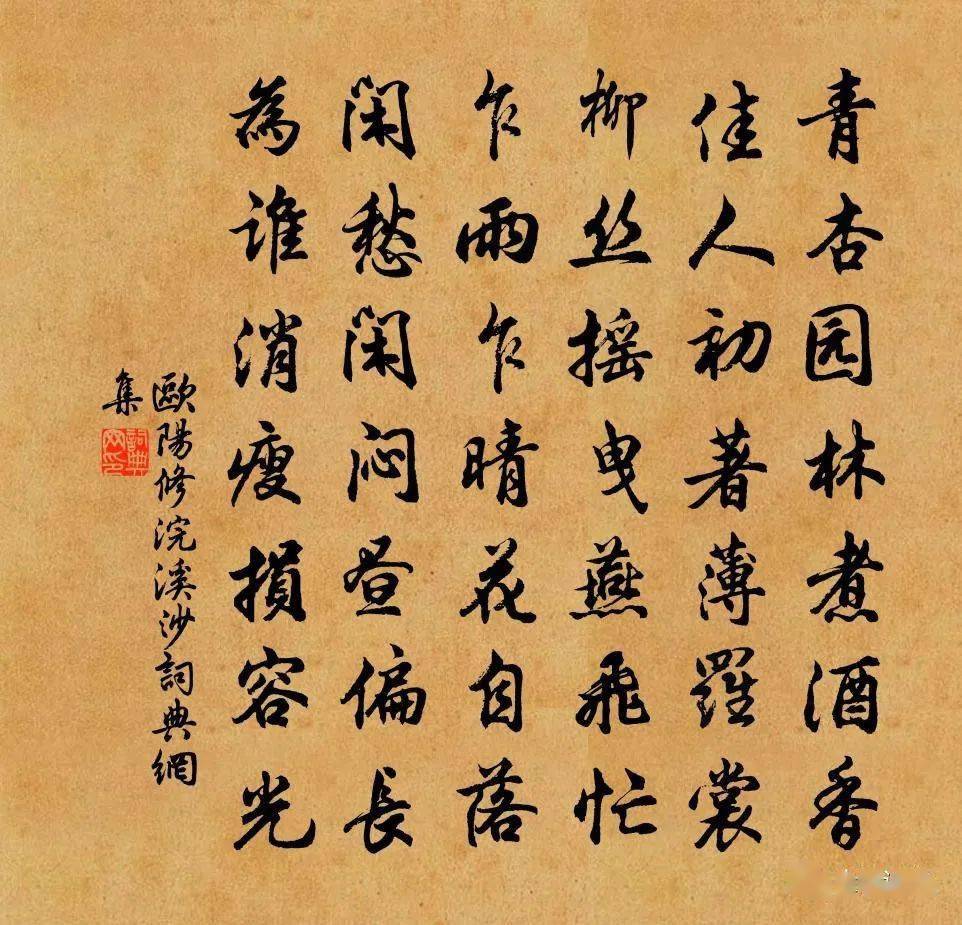 青杏园林煮酒香
佳人初著薄羅裳
柳丝摇曳燕飛忙
乍雨乍晴花自落
闲愁闲闷昼偏長
為谁消瘦損容光
歐陽修浣溪沙詞典網
集
詞典